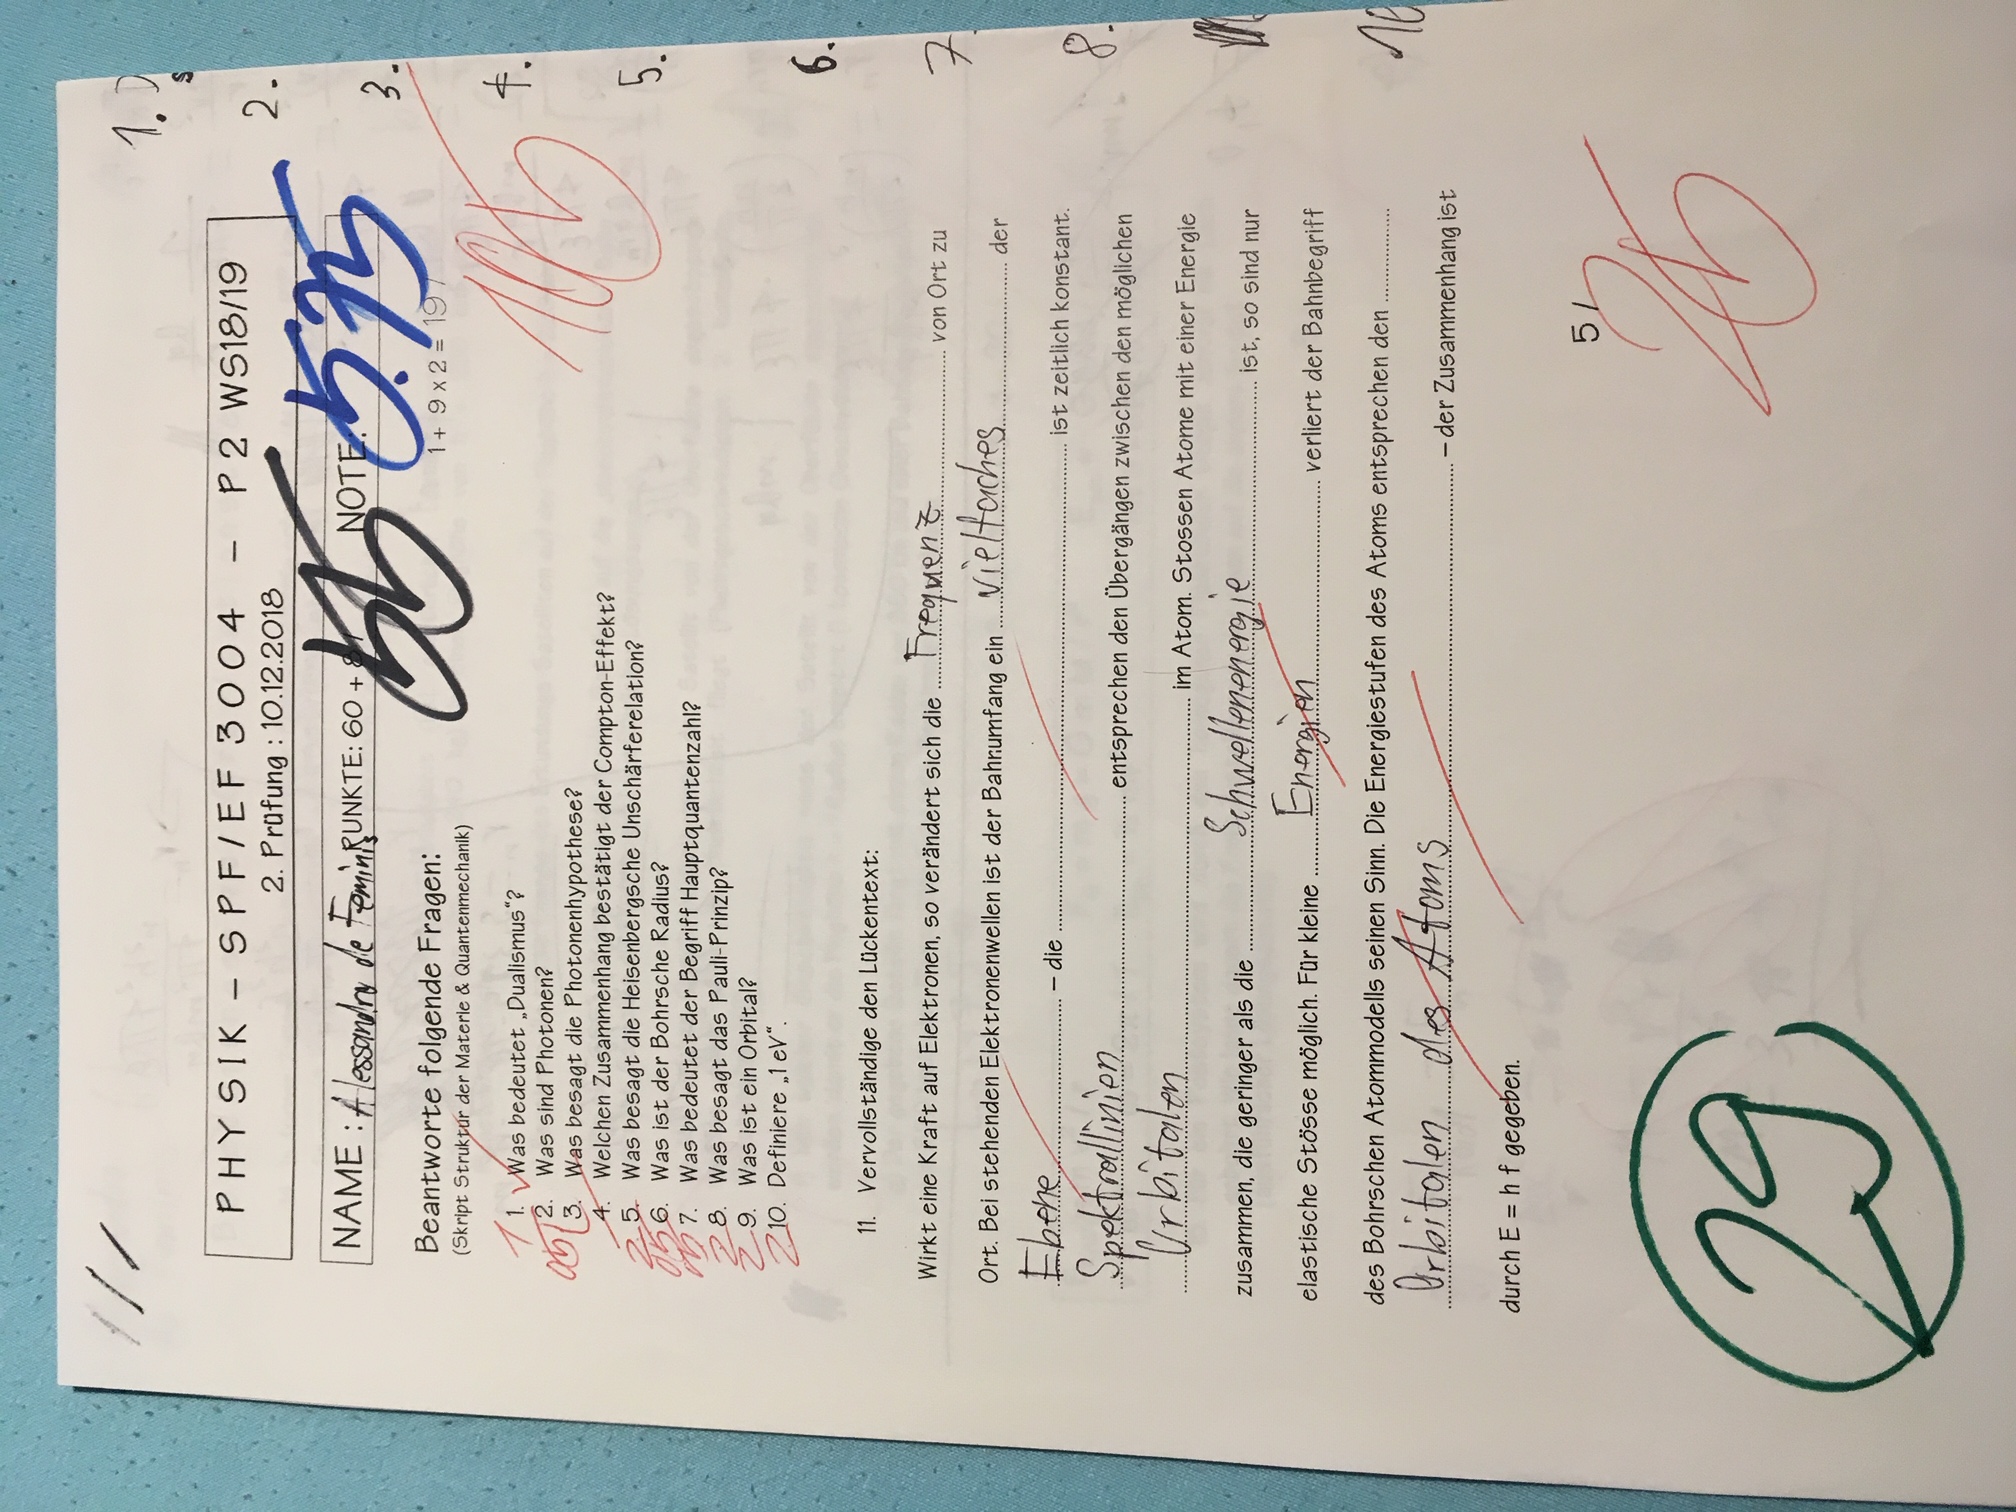 PHYSIK – SPF/EF 3004 – P2 WS18/19
2. Prüfung : 10.12.2018
NAME : Alessandro de Feminis PUNKTE: 60 + 8 / 55 NOTE: 5.75
Beantworte folgende Fragen:
(Skript Struktur der Materie & Quantenmechanik)
1 + 9 x 2 = 19 /
1 1. Was bedeutet „Dualismus“?
05 2. Was sind Photonen?
3. Was besagt die Photonenhypothese?
4. Welchen Zusammenhang bestätigt der Compton-Effekt?
2 5. Was besagt die Heisenbergsche Unschärferelation?
05 6. Was ist der Bohrsche Radius?
05 7. Was bedeutet der Begriff Hauptquantenzahl?
2 8. Was besagt das Pauli-Prinzip?
2 9. Was ist ein Orbital?
2 10. Definiere „1 eV“.
105
11. Vervollständige den Lückentext:
Wirkt eine Kraft auf Elektronen, so verändert sich die Frequenz von Ort zu
Ort. Bei stehenden Elektronenwellen ist der Bahnumfang ein vielfaches der
Ebene – die ist zeitlich konstant.
Spektrallinien entsprechen den Übergängen zwischen den möglichen
Orbitalen im Atom. Stossen Atome mit einer Energie
zusammen, die geringer als die Schwellenenergie ist, so sind nur
elastische Stösse möglich. Für kleine Energien verliert der Bahnbegriff
des Bohrschen Atommodells seinen Sinn. Die Energiestufen des Atoms entsprechen den
Orbitalen des Atoms – der Zusammenhang ist
durch E = h f gegeben.
5 /
25
29
1.
2.
3.
4.
5.
6.
7.
8.
10